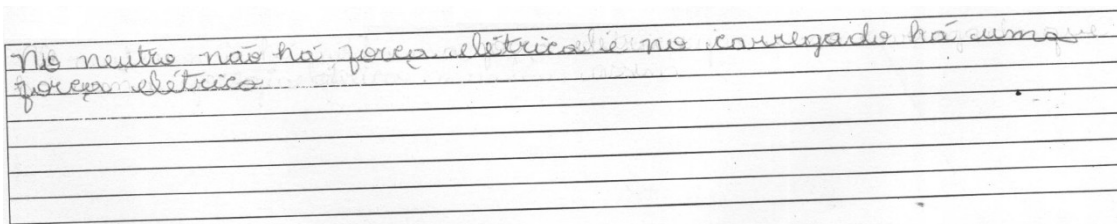 No neutro não há força elétrica e no carregado há uma
força elétrica